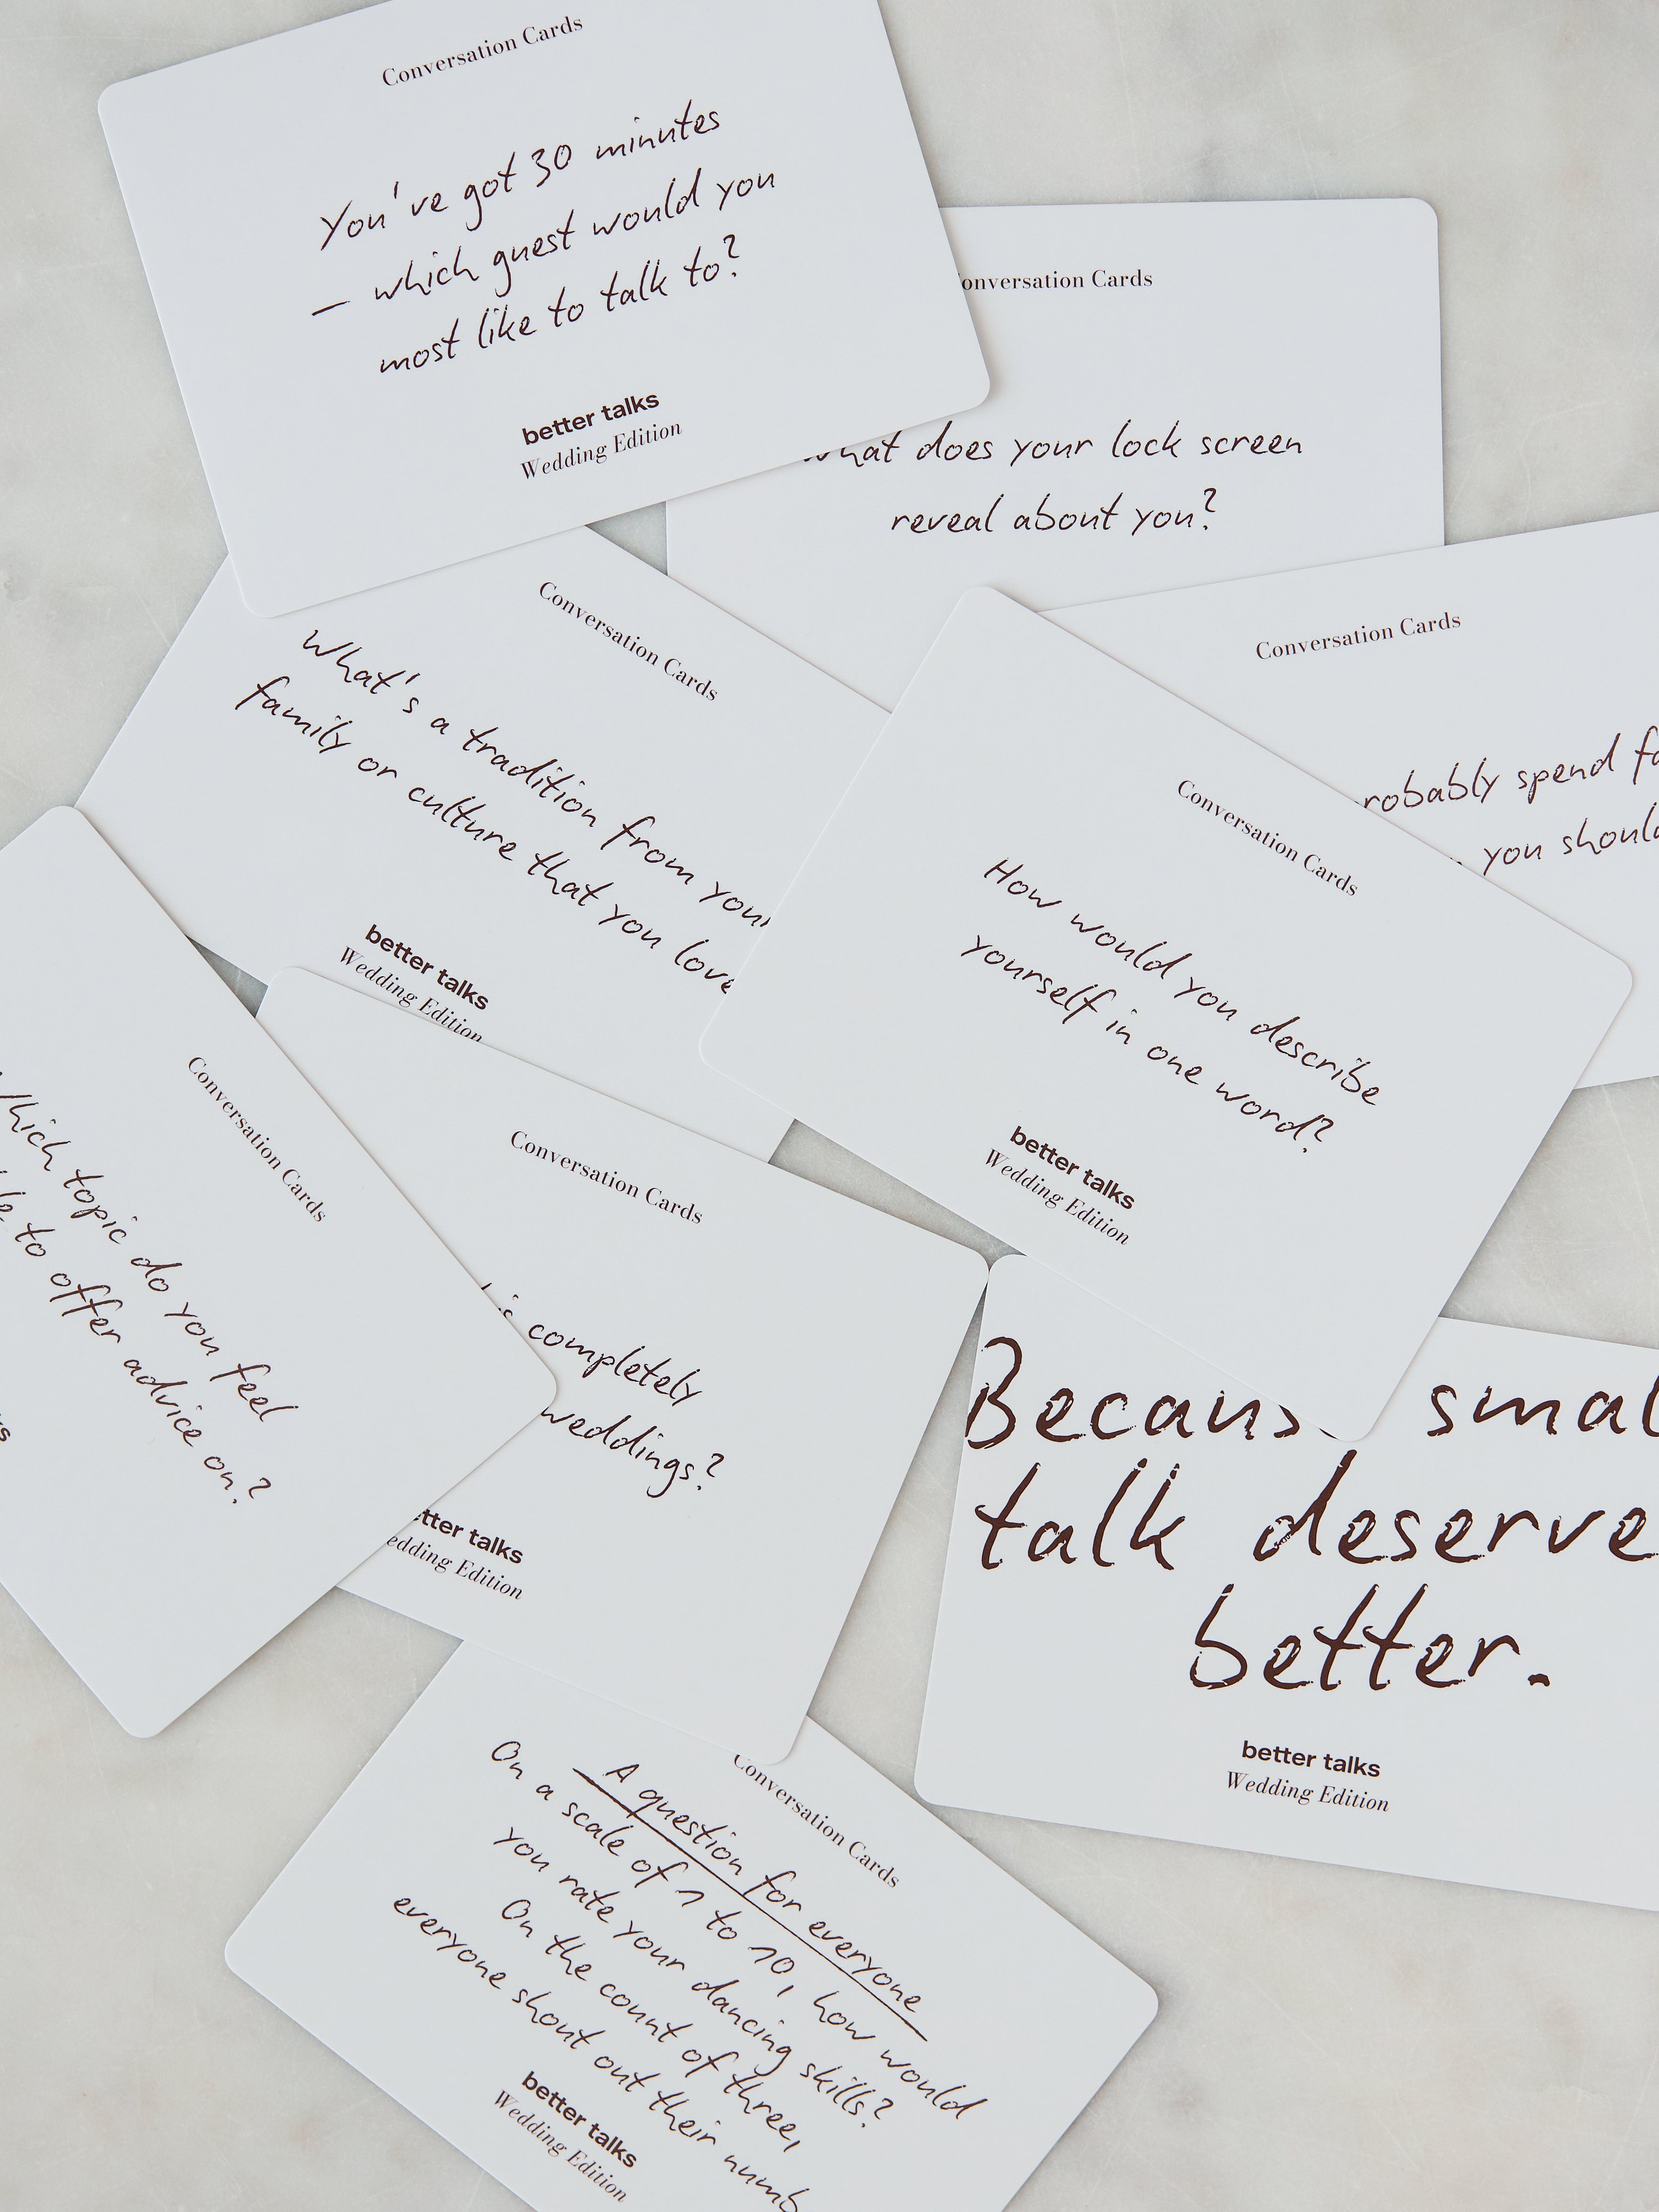 Conversation Cards
You've got 30 minutes
– which guest would you
most like to talk to?
better talks
Wedding Edition
Conversation Cards
What does your lock screen
reveal about you?
Conversation Cards
What's a tradition from your
family or culture that you love
better talks
Wedding Edition
Conversation Cards
probably spend
you should
Conversation Cards
How would you describe
yourself in one word?
better talks
Wedding Edition
Conversation Cards
Which topic do you feel
to offer advice on?
Conversation Cards
is completely
weddings?
better talks
Wedding Edition
Because small
talk deserve
better.
better talks
Wedding Edition
Conversation Cards
A question for everyone
On a scale of 1 to 10, how would
you rate your dancing skills?
On the count of three,
everyone shout out their
better talks
Wedding Edition